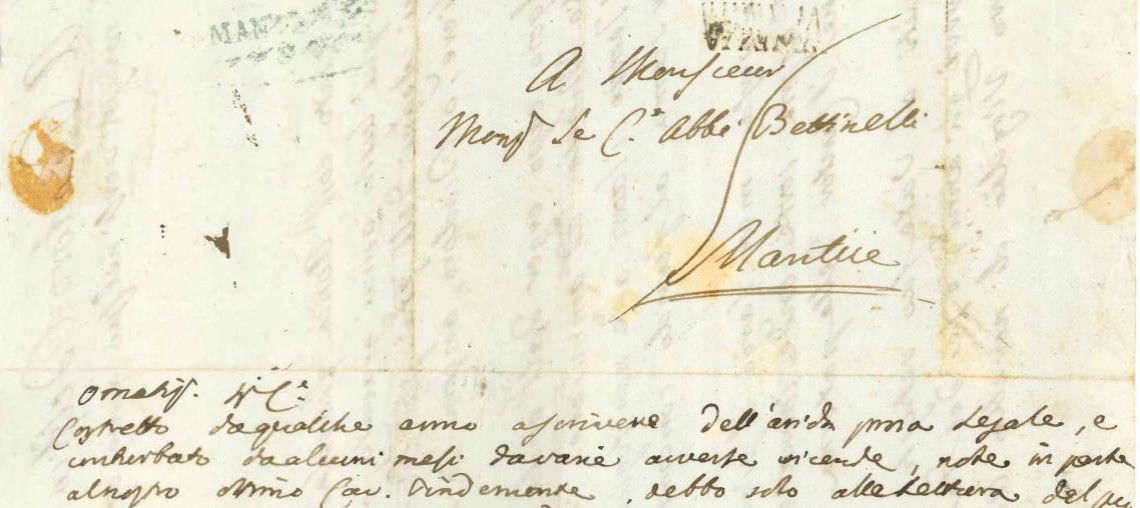 MAN
A Monsieur
Mons.r Le C.e Abbé Bettinelli
Mantüe
Ornatis. Sr C.e
Costretto da qualche anno a scrivere dell'arida prosa legale, e
conturbato da alcuni mesi da varie avverse vicende, note in parte
al nostro ottimo Cav. debbo solo alla lettura del